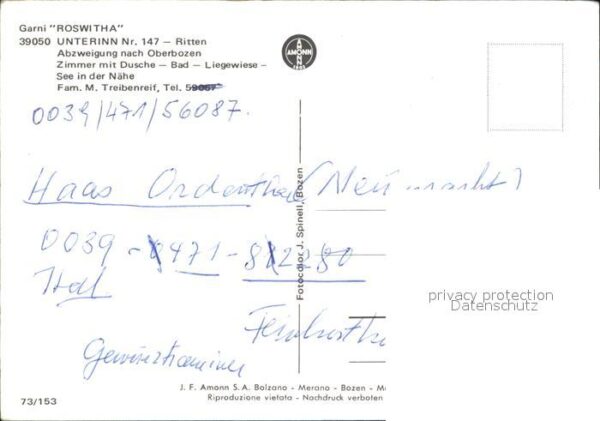 Garni "ROSWITHA"
39050 UNTERINN Nr. 147 — Ritten
Abzweigung nach Oberbozen
Zimmer mit Dusche — Bad — Liegewiese —
See in der Nähe
Fam. M. Treibenreif, Tel.
AMONN
0039/471/56087.
Haas (Neumarkt)
0039 - 471 -
Fotocolor J. Spinell, Bozen
privacy protection
Datenschutz
Gewürztraminer
J. F. Amonn S.A. Bolzano - Merano - Bozen - M
Riproduzione vietata - Nachdruck verboten
73/153